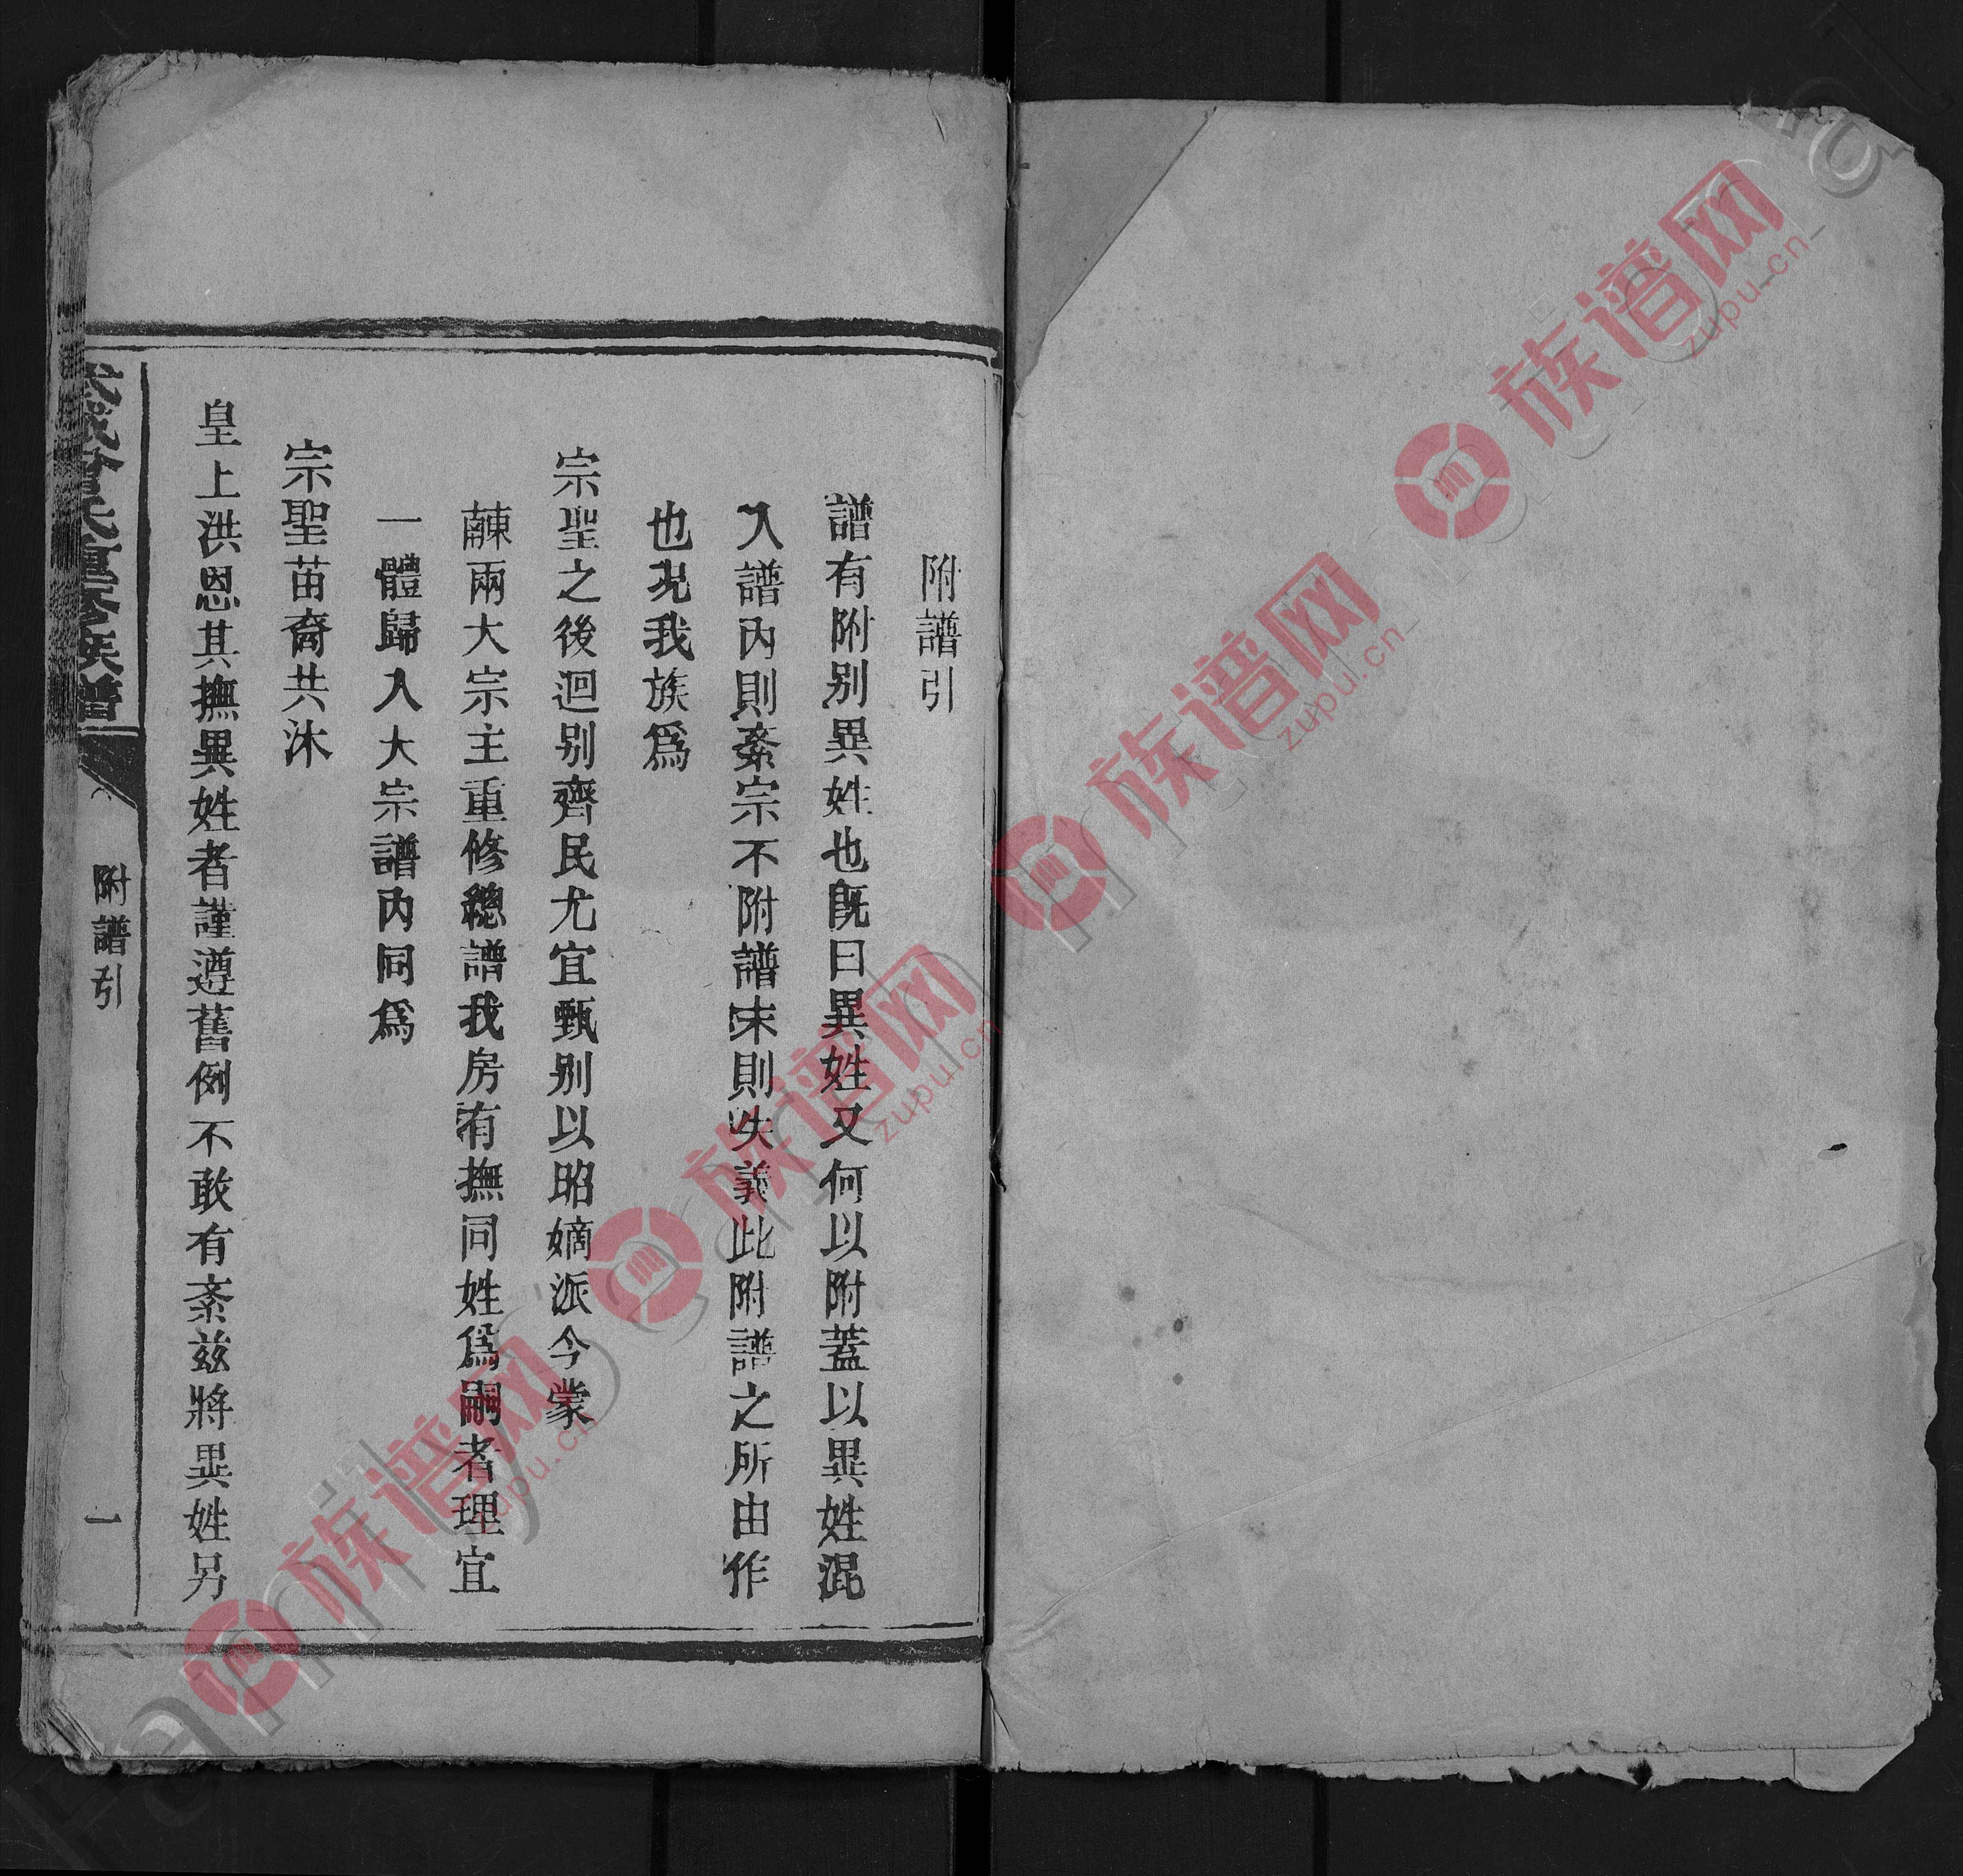 附譜引
譜有附別異姓也既曰異姓又何以附蓋以異姓混
入譜內則紊宗不附譜末則失義此附譜之所由作
也況我族爲
宗聖之後迥別齊民尤宜甄別以昭嫡派今蒙
南東兩大宗主重修總譜我房有撫同姓爲嗣者理宜
一體歸入大宗譜內同爲
宗聖苗裔共沐
皇上洪恩其撫異姓者謹遵舊例不敢有紊茲將異姓另
武城曾氏重修族譜
附譜引
一
族谱网
zupu.cn
族谱网
zupu.cn
族谱网
zupu.cn
族谱网
zupu.cn